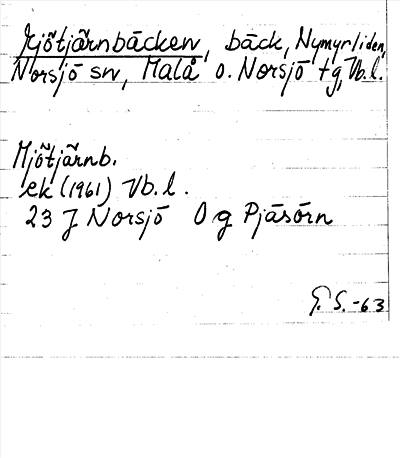 Mjötjärnbäcken, bäck, Nymyrliden,
Norsjö sn, Malå o. Norsjö tg, Vb. l.
Mjötjärnb.
ek (1961) Vb. l.
23 J Norsjö O g Pjäsörn
G. S. -63